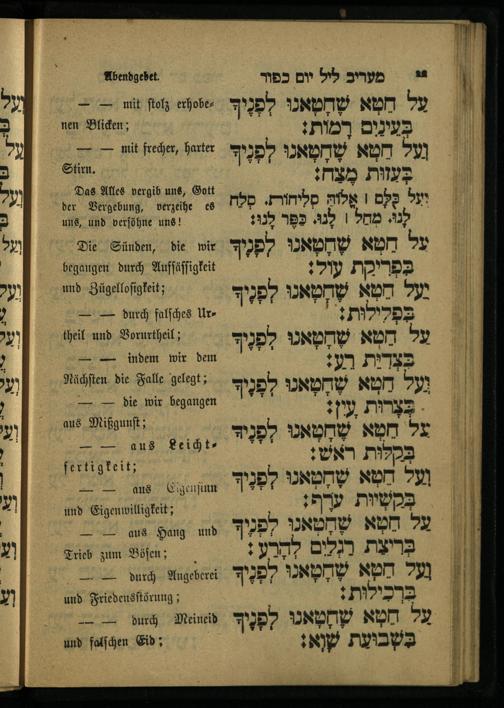 22
מעריב ליל יום כפור
Abendgebet.
עַל חֵטְא שֶׁחָטָאנוּ לְפָנֶיךָ
בְּעֵינַיִם רָמוֹת:
וְעַל חֵטְא שֶׁחָטָאנוּ לְפָנֶיךָ
בְּעַזּוּת מֶצַח:
וְעַל כֻּלָּם ׀ אֱלוֹהַּ סְלִיחוֹת. סְלַח
לָנוּ. מְחַל ׀ לָנוּ. כַּפֶּר לָנוּ:
עַל חֵטְא שֶׁחָטָאנוּ לְפָנֶיךָ
בִּפְרִיקַת עוֹל:
וְעַל חֵטְא שֶׁחָטָאנוּ לְפָנֶיךָ
בִּפְלִילוּת:
עַל חֵטְא שֶׁחָטָאנוּ לְפָנֶיךָ
בִּצְדִיַּת רֵעַ:
וְעַל חֵטְא שֶׁחָטָאנוּ לְפָנֶיךָ
בְּצָרוּת עָיִן:
עַל חֵטְא שֶׁחָטָאנוּ לְפָנֶיךָ
בְּקַלּוּת רֹאשׁ:
וְעַל חֵטְא שֶׁחָטָאנוּ לְפָנֶיךָ
בְּקַשְׁיוּת עֹרֶף:
עַל חֵטְא שֶׁחָטָאנוּ לְפָנֶיךָ
בְּרִיצַת רַגְלַיִם לְהָרַע:
וְעַל חֵטְא שֶׁחָטָאנוּ לְפָנֶיךָ
בִּרְכִילוּת:
עַל חֵטְא שֶׁחָטָאנוּ לְפָנֶיךָ
בִּשְׁבוּעַת שָׁוְא:
— — mit stolz erhobe-
nen Blicken;
— — mit frecher, harter
Stirn.
Das Alles vergib uns, Gott
der Vergebung, verzeihe es
uns, und versöhne uns!
Die Sünden, die wir
begangen durch Auffässigkeit
und Zügellosigkeit;
— — durch falsches Ur-
theil und Vorurtheil;
— — indem wir dem
Nächsten die Falle gelegt;
— — die wir begangen
aus Mißgunst;
— — aus Leicht-
fertigkeit;
— — aus Eigensinn
und Eigenwilligkeit;
— — aus Hang und
Trieb zum Bösen;
— — durch Angeberei
und Friedensstörung;
— — durch Meineid
und falschen Eid;